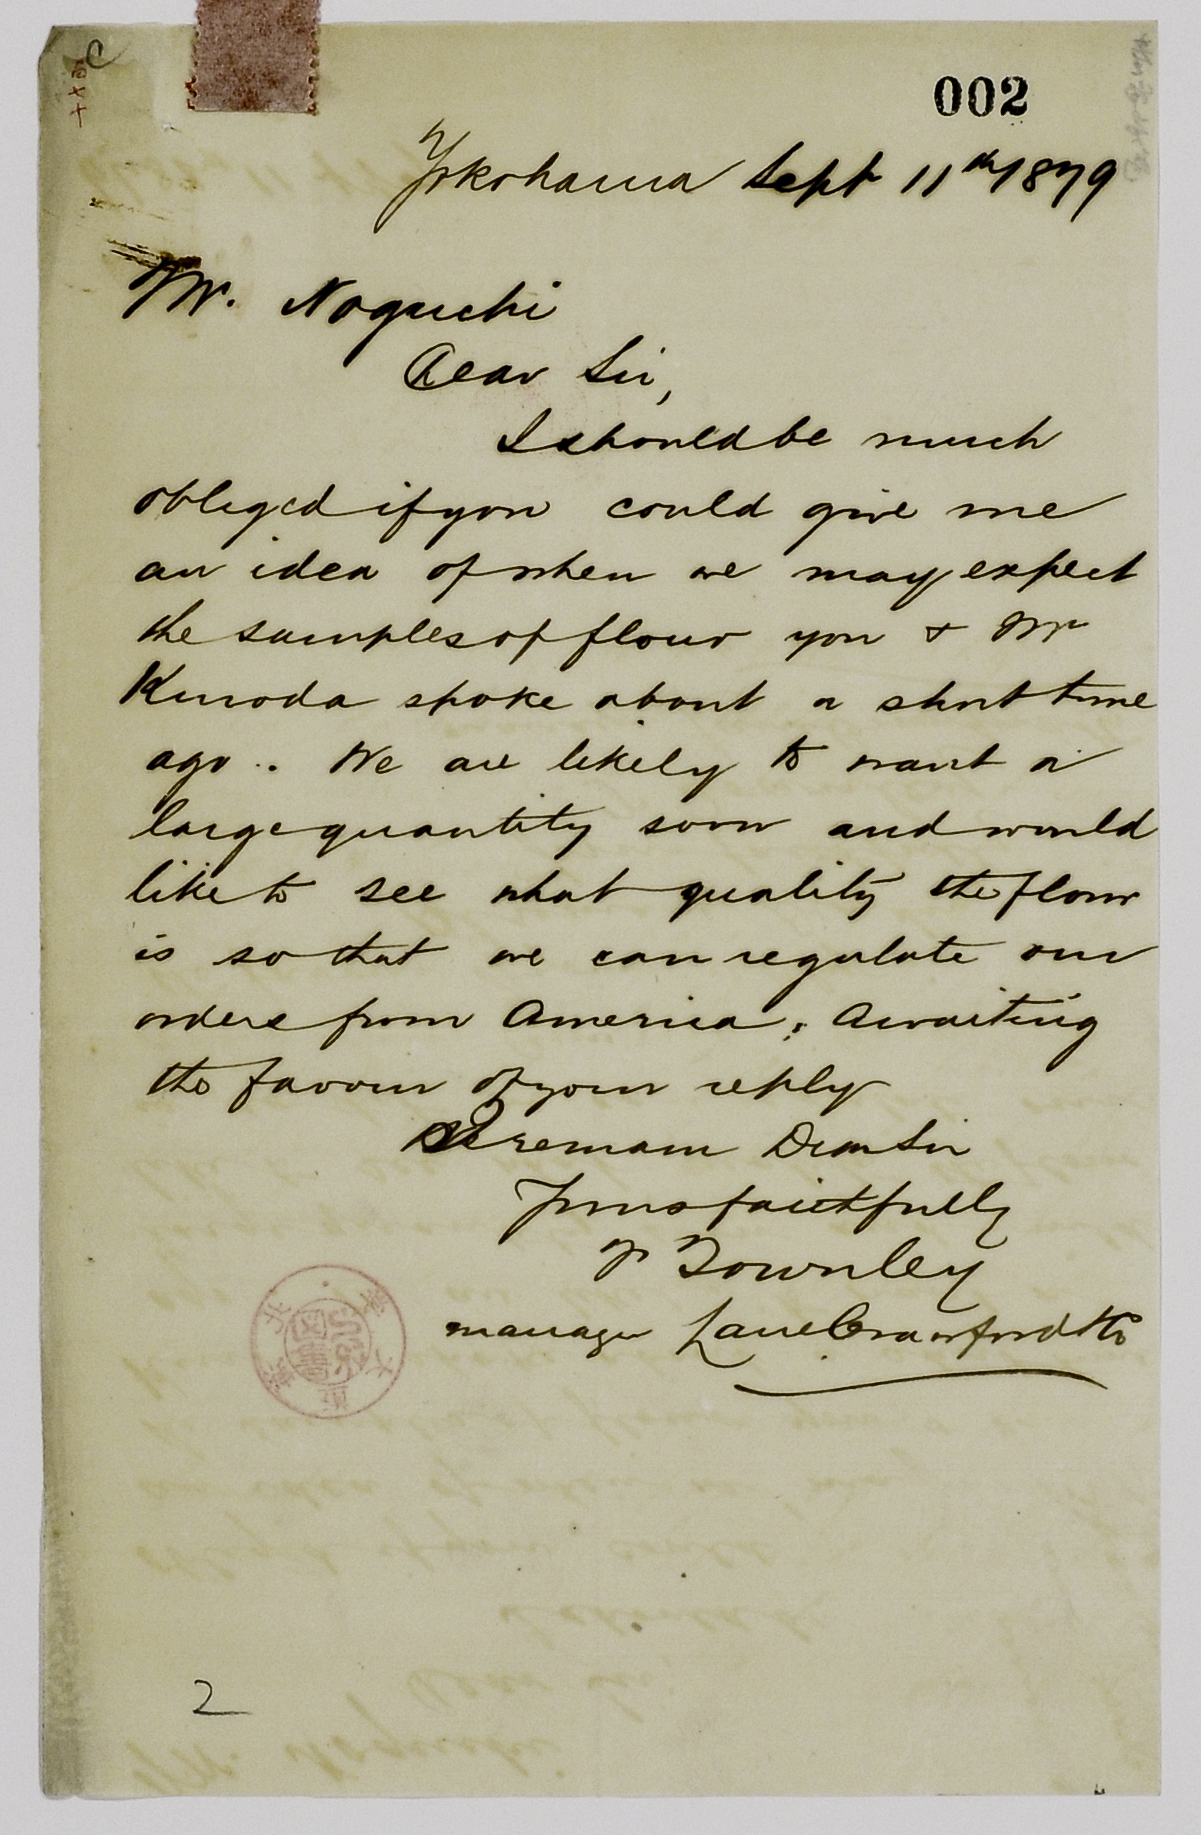 C
002
Yokohama Sept 11th 1879
Mr. Noguchi
Dear Sir,
I should be much
obliged if you could give me
an idea of when we may expect
the samples of flour you & Mr
Kuroda spoke about a short time
ago.. We are likely to want a
large quantity soon and would
like to see what quality the flour
is so that we can regulate our
orders from America. Awaiting
the favour of your reply
I remain Dear Sir
Yours faithfully
Townley
manager Lane Crawford & Co
2